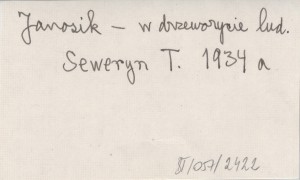 Janosik – w drzeworycie lud.
Seweryn T. 1934 a
II/057/2422